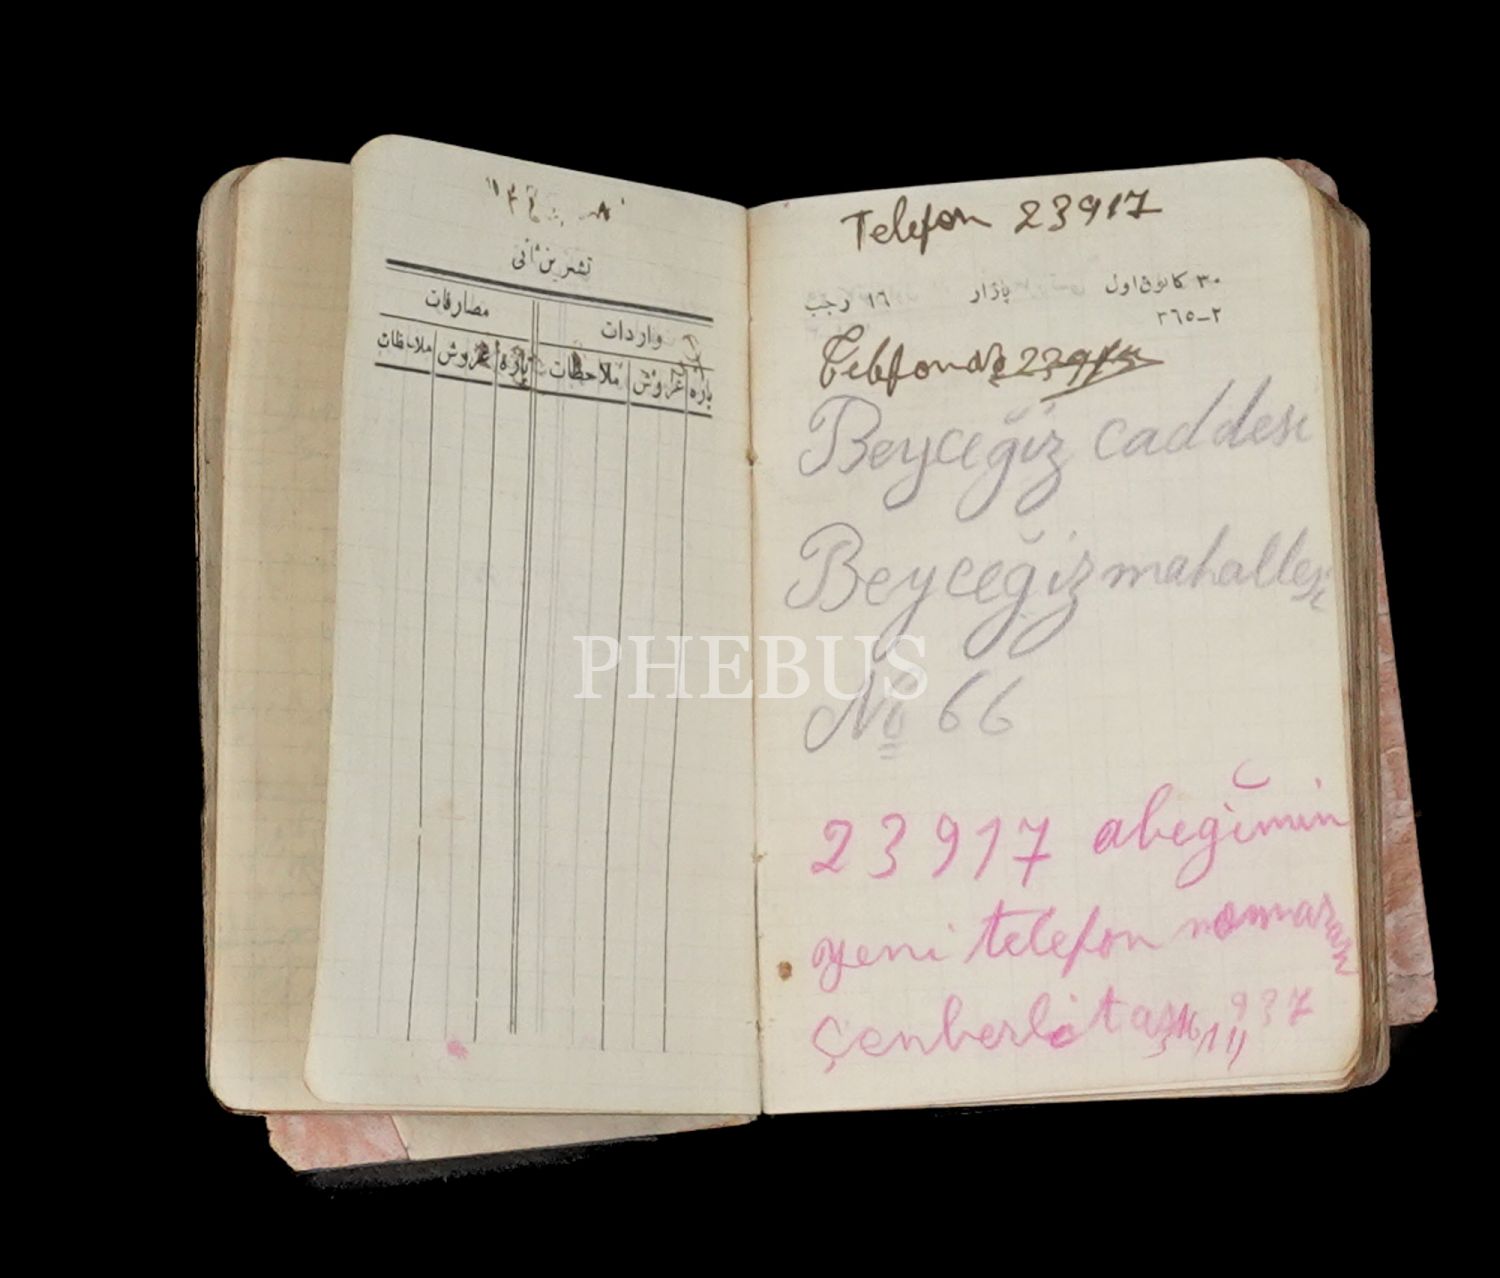 تشرین ثانی
واردات مصارفات
پاره غروش ملاحظات پاره غروش ملاحظات
Telefon 23917
٣٠ كانون اول پازار ١٦ رجب
٢-٣٦٥
Telefon No
Beyceğiz caddesi
Beyceğiz mahallesi
No 66
23917 abeğimin
yeni telefon
Çenberlitaş 937
PHEBUS